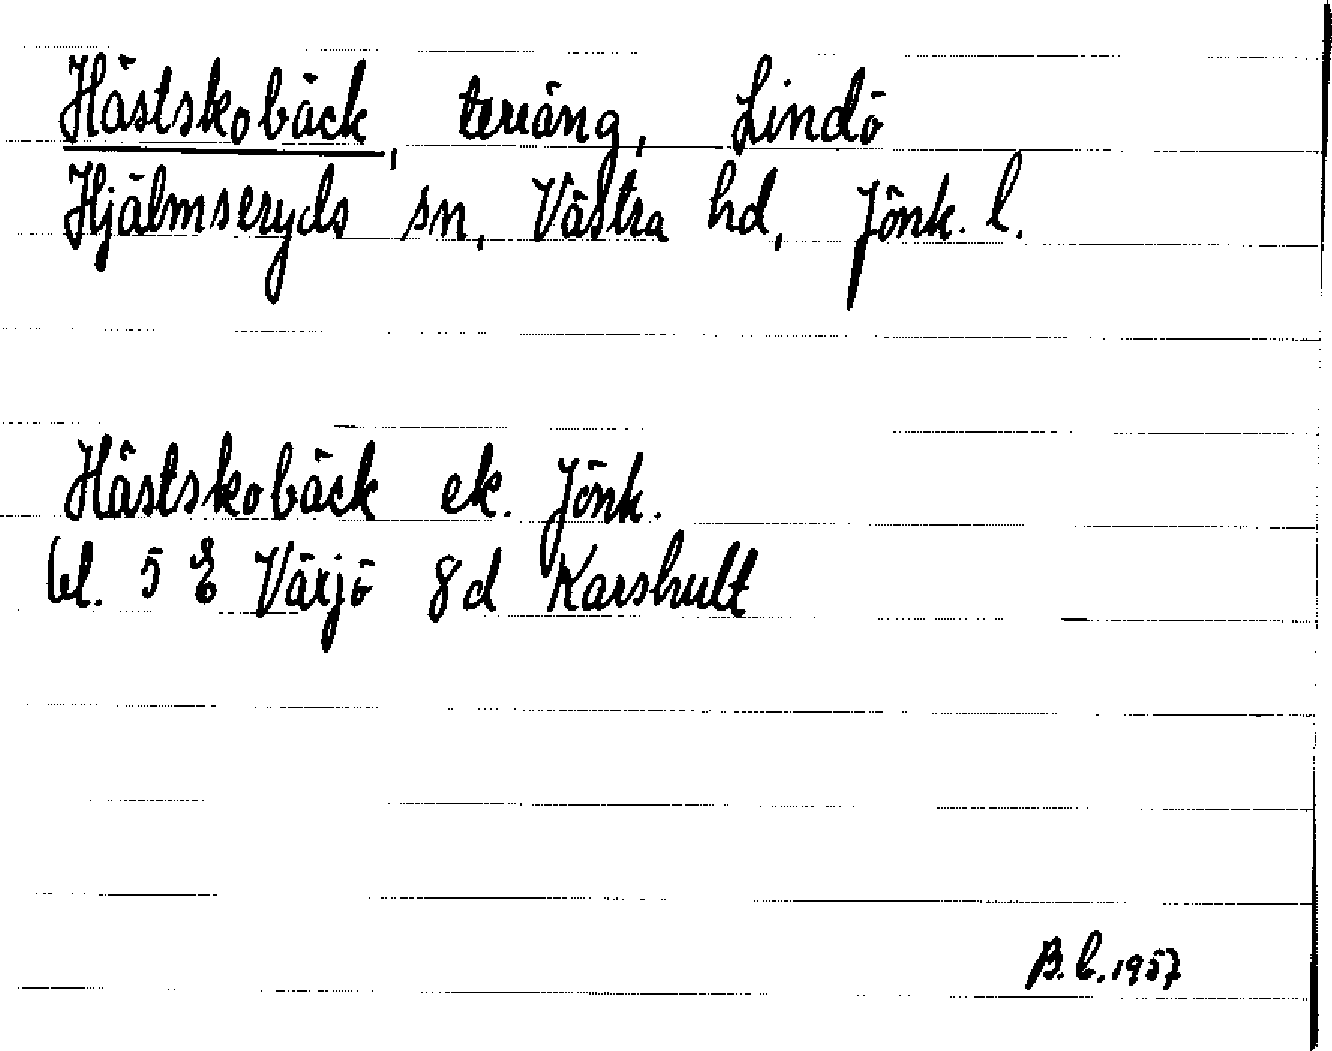 Hästskobäck, terräng, Lindö
Hjälmseryds sn, Västra hd, Jönk. l.
Hästskobäck ek. Jönk.
bl. 5 E Växjö 8d Karshult
B.L. 1957